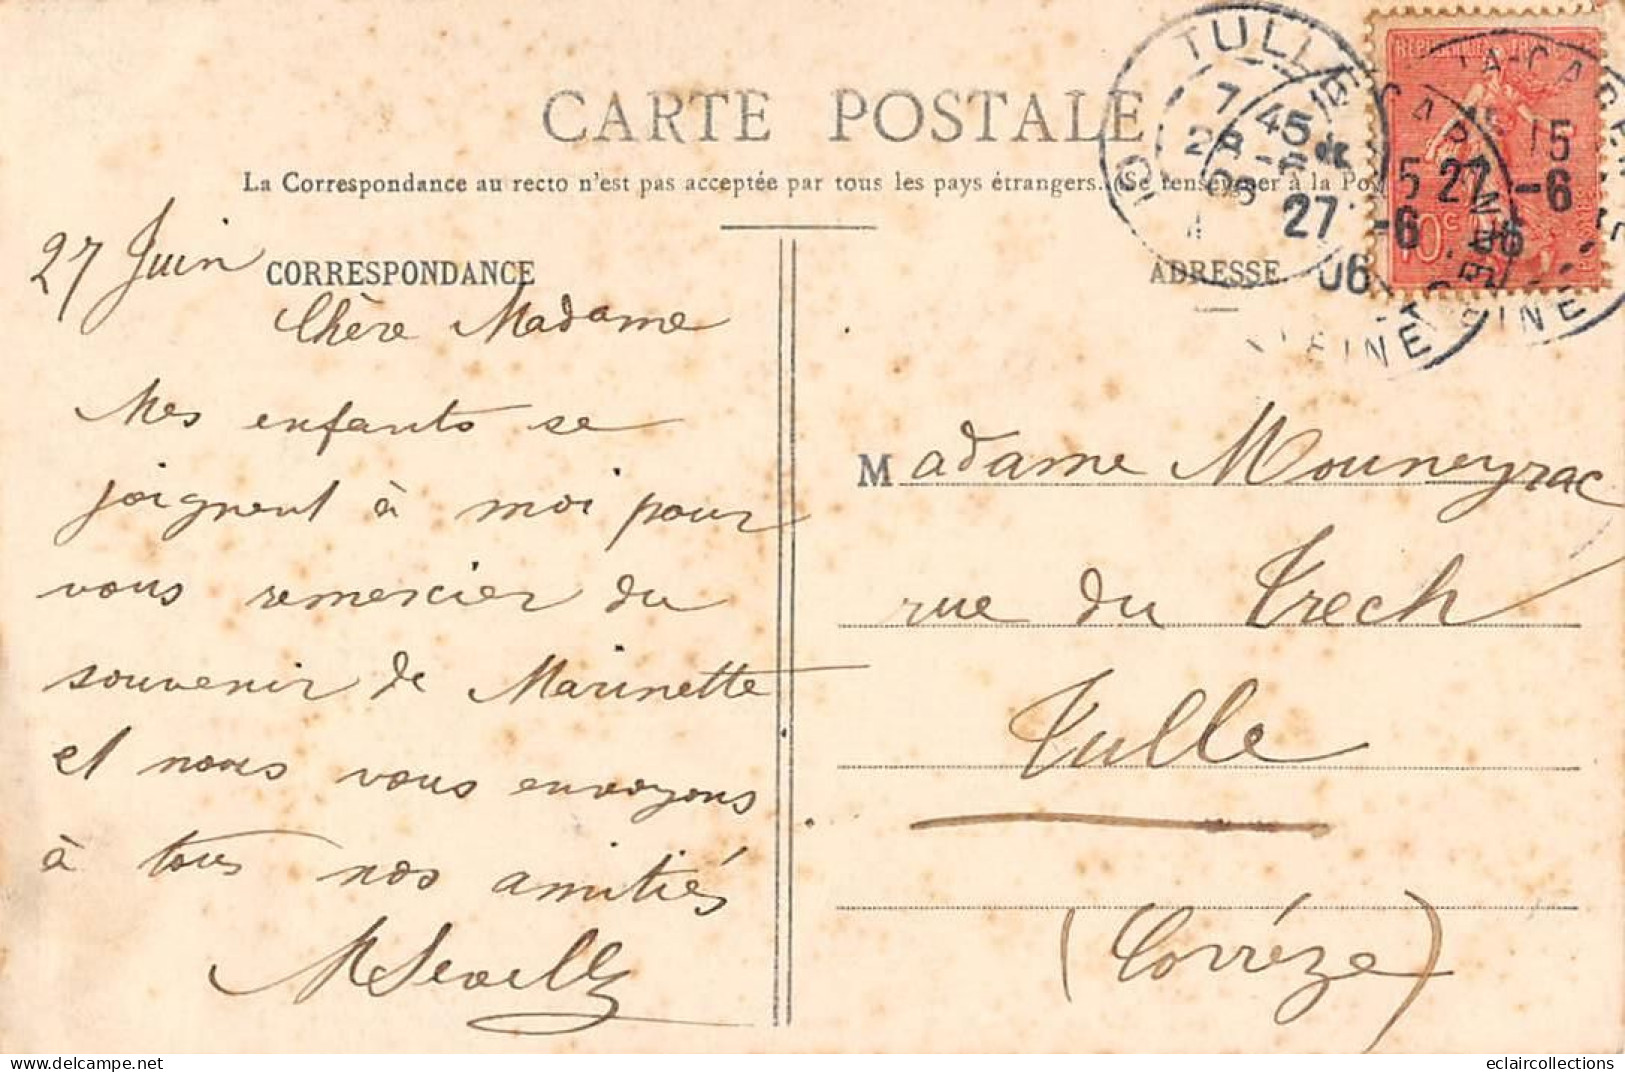 CARTE POSTALE
La Correspondance au recto n'est pas acceptée par tous les pays étrangers. (Se renseigner à la Po
CORRESPONDANCE
ADRESSE
27 Juin
Chère Madame
Mes enfants se
joignent à moi pour
vous remercier du
souvenir de Marinette
et nous vous envoyons
à tous nos amitiés
Madame Mouneyrac
rue du Trech
Tulle
(Corrèze)
TULLE
7 45
27 -6
06
15
27 -6
10c
eclaircollections